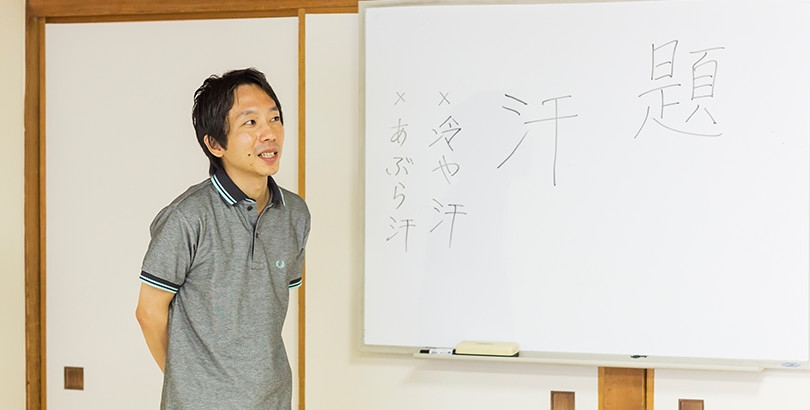 題
汗
×冷や汗
×あぶら汗